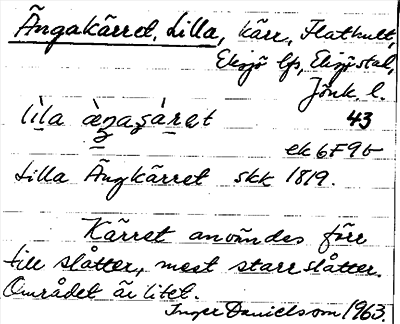 Ängakärret, Lilla, kärr, Flathult,
Eksjö lfs, Eksjö stad,
Jönk. l.
lìla 43
ek 6F9b
Lilla Ängkärret skk 1819.
Kärret användes förr
till slåtter, mest starrslåtter.
Området är litet.
Inger Danielsson 1963.